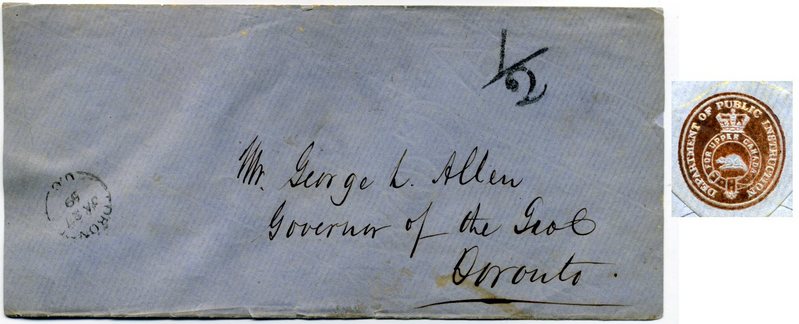 1/2
Mr. George L. Allen
Governor of the Gaol
Toronto.
TORONTO
U.C.
JA 27
59
DEPARTMENT OF PUBLIC INSTRUCTION
FOR UPPER CANADA